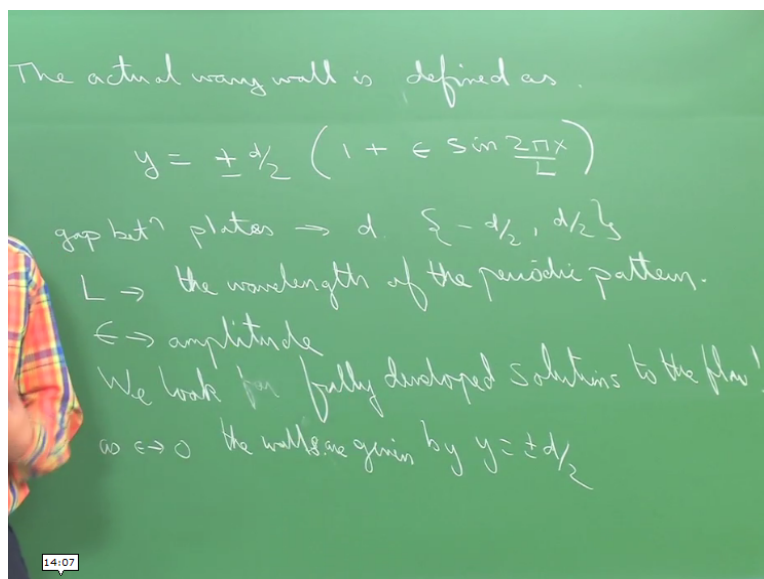 The actual wavy wall is defined as.
y = ± d/2 (1 + ε sin 2πx/L)
gap betⁿ plates → d {-d/2, d/2}
L → the wavelength of the periodic pattern.
ε → amplitude
We look for fully developed solutions to the flow!
as ε→0 the walls are given by y = ± d/2
14:07